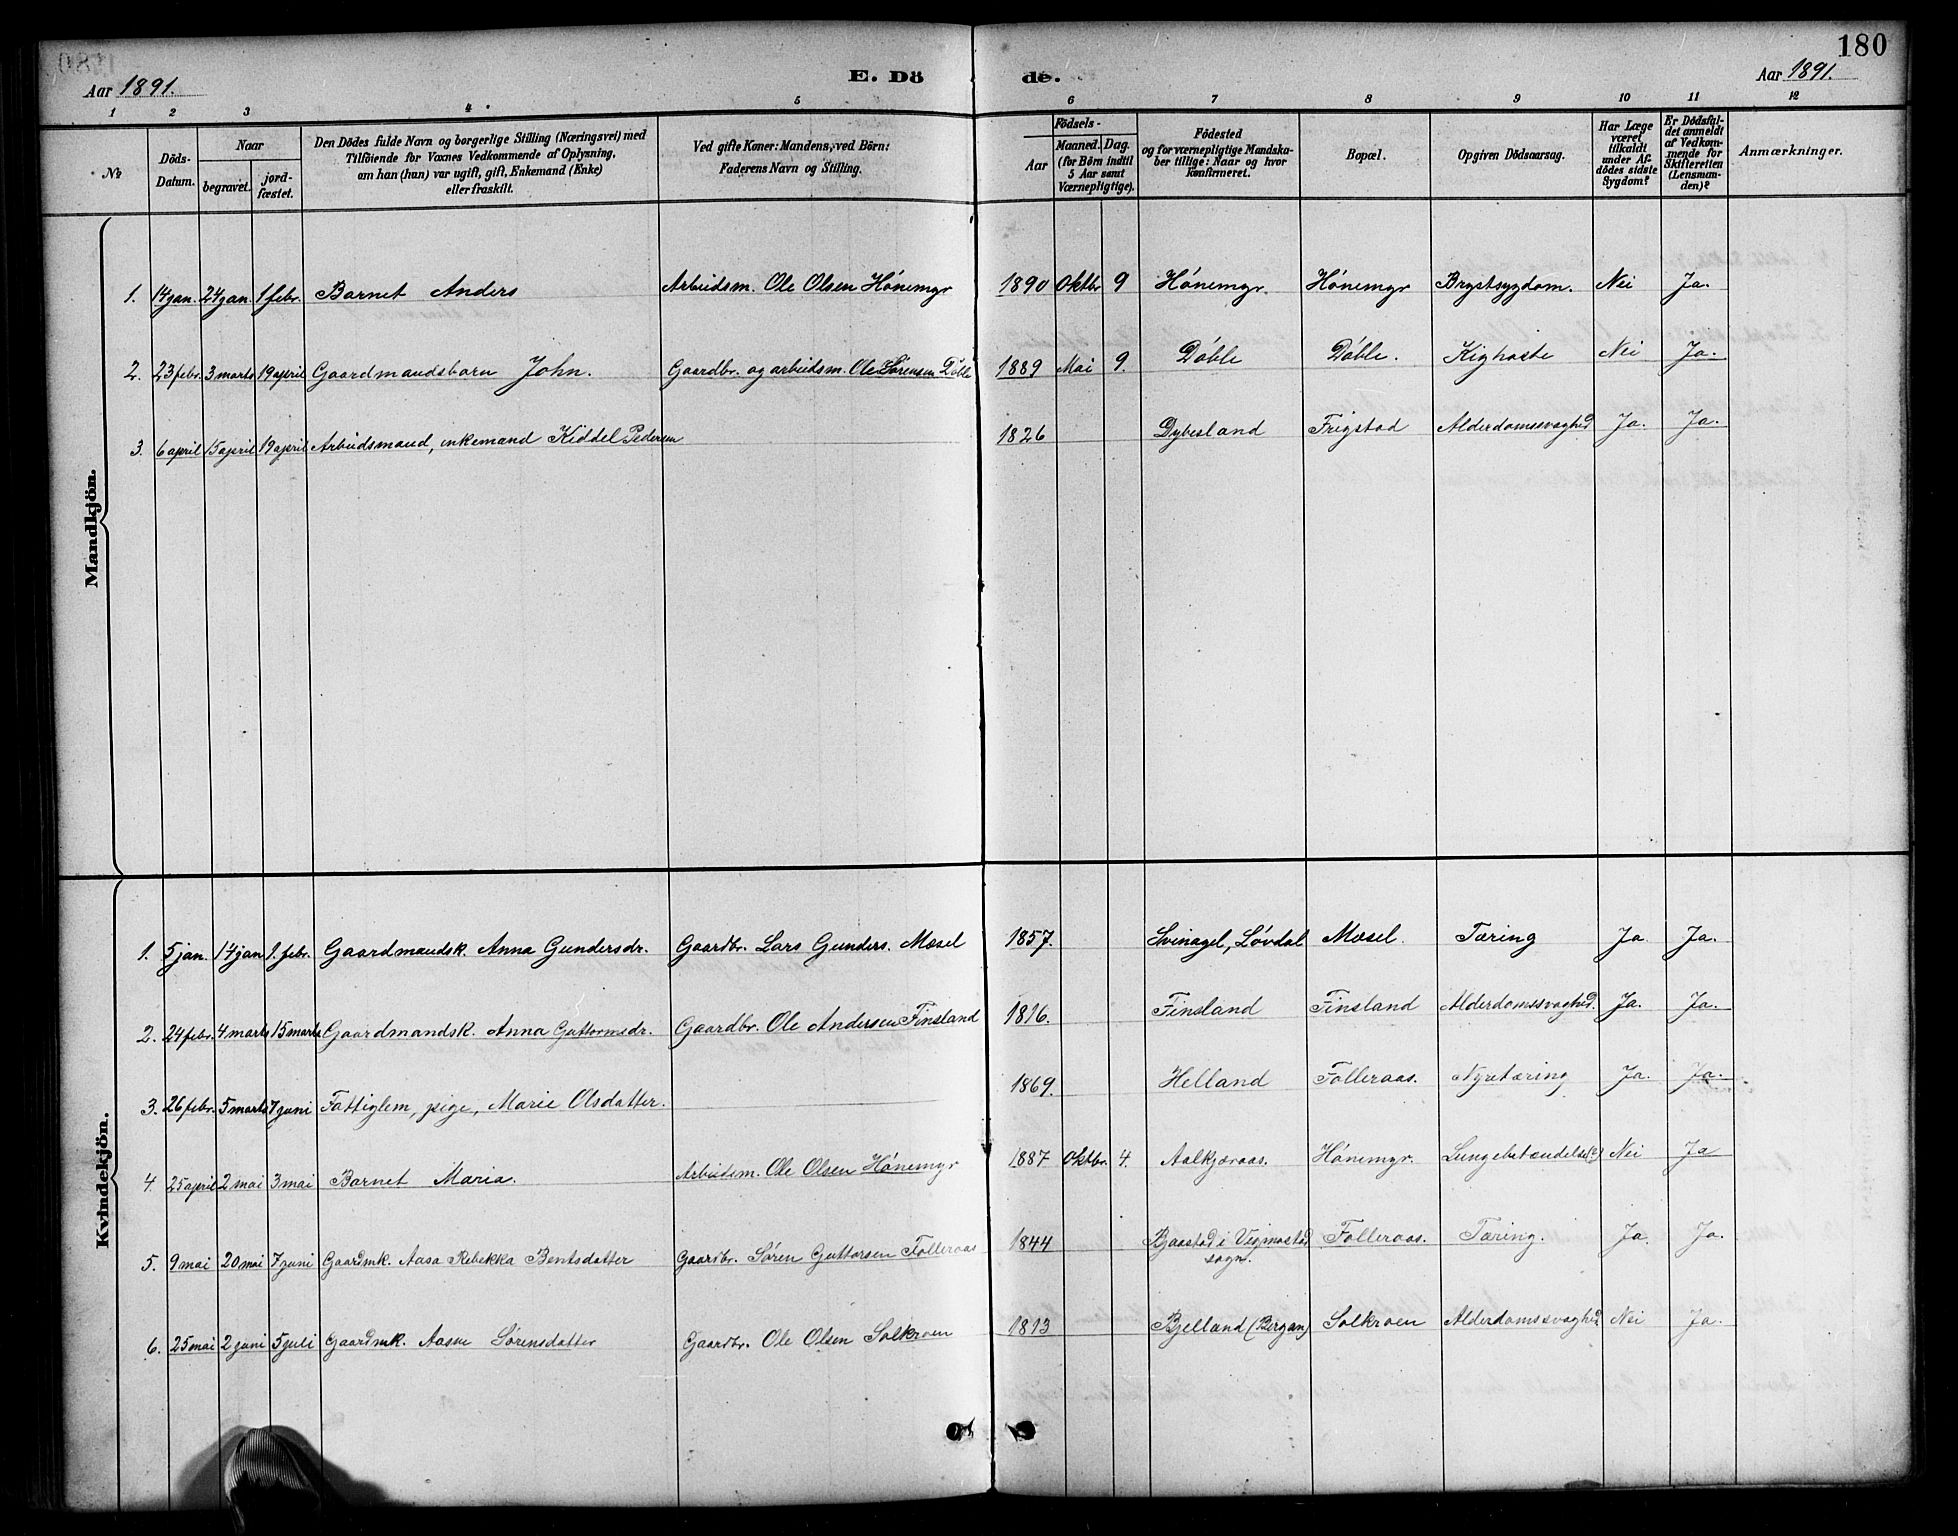 180
Aar 1891.
E. Dö
de.
Aar 1891.
1 2 3 4 5 6 7 8 9 10 11 12
No
Döds-Datum.
Naar
begravet.
jord-fæstet.
Den Dödes fulde Navn og borgerlige Stilling (Næringsvei) med
Tilföiende for Voxnes Vedkommende af Oplysning,
om han (hun) var ugift, gift, Enkemand (Enke)
eller fraskilt.
Ved gifte Koner: Mandens, ved Börn:
Faderens Navn og Stilling.
Födsels-
Aar
Maaned. Dag.
(for Börn indtil
5 Aar samt
Værnepligtige).
Födested
og for værnepligtige Mandska-
ber tillige: Naar og hvor
konfirmeret.
Bopæl.
Opgiven Dödsaarsag.
Har Læge
været
tilkaldt
under Af-
dödes sidste
Sygdom?
Er Dödsfal-
det anmeldt
af Vedkom-
mende for
Skifteretten
(Lensman-
den)?
Anmærkninger.
Mandkjön.
1. 14 jan. 24 jan. 1 febr. Barnet Anders Arbeidsm. Ole Olsen Hónemyr 1890 Oktbr 9 Hónemyr. Hónemyr Brystsygdom. Nei Ja.
2. 23 febr. 3 marts 19 april Gaardmandsbarn John. Gaardbr. og arbeidsm. Ole Sørensen Døble 1889 Mai 9. Dóble Dóble. Kighoste Nei Ja.
3. 6 april 15 april 19 april Arbeidsmand, enkemand Kiddel Pedersen 1826 Dybesland Frigstad Alderdomssvaghed Ja. Ja.
Kvindekjön.
1. 5 jan. 14 jan 1. febr. Gaardmandsk. Anna Gundersdr. Gaardbr. Lars Gunders. Mæsel 1857. Svinagel, Lóvdal Mæsel. Tæring Ja Ja.
2. 24 febr. 4 marts 15 marts Gaardmandsk. Anna Guttormsdr. Gaardbr. Ole Andersen Finsland 1816. Finsland Finsland Alderdomssvaghed. Ja. Ja.
3. 26 febr. 5 marts 7 juni Fattiglem, pige, Marie Olsdatter. 1869. Helland Folleraas. Nyretæring Ja. Ja.
4. 25 april 2 mai 3 mai Barnet Maria. Arbeidsm. Ole Olsen Hónemyr 1887 Oktbr. 4. Aalkjæraas. Hónemyr. Lungebetændelse(?) Nei Ja
5. 9 mai 20 mai 7 juni Gaardmk. Aasa Rebekka Bentsdatter Gaardbr. Sóren Guttorsen Folleraas 1844 Bjaastad i Vigmostad
sogn. Folleraas. Tæring. Ja. Ja.
6. 25 mai 2 juni 5 juli Gaardmk. Aasne Sórensdatter Gaardbr. Ole Olsen Solkroen 1813 Bjelland (Bergan) Solkroen Alderdomssvaghed. Nei Ja.